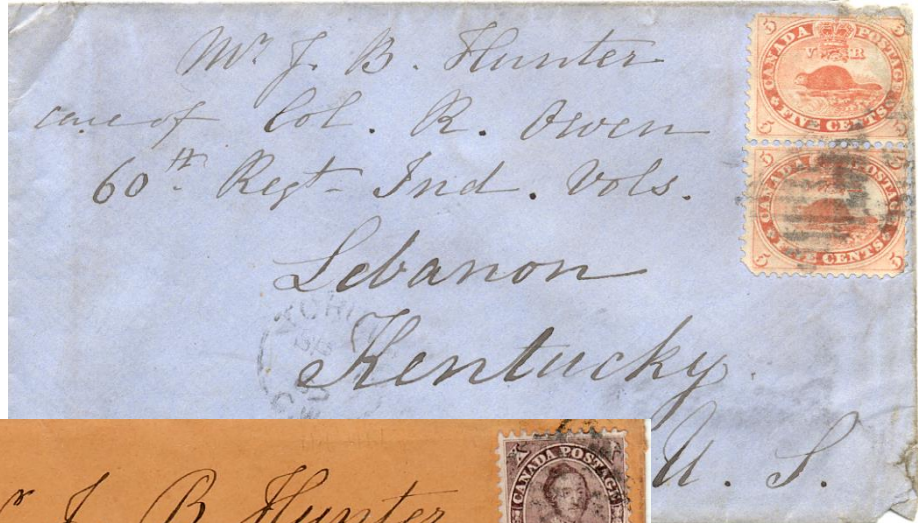 Mr J. B. Hunter
care of Col. R. Owen
60th Regt. Ind. Vols.
Lebanon
Kentucky
U. S.
5 5
CANADA POSTAGE
V R
FIVE CENTS
5 5
5 5
CANADA POSTAGE
FIVE CENTS
5 5
J. B. Hunter
CANADA POSTAGE